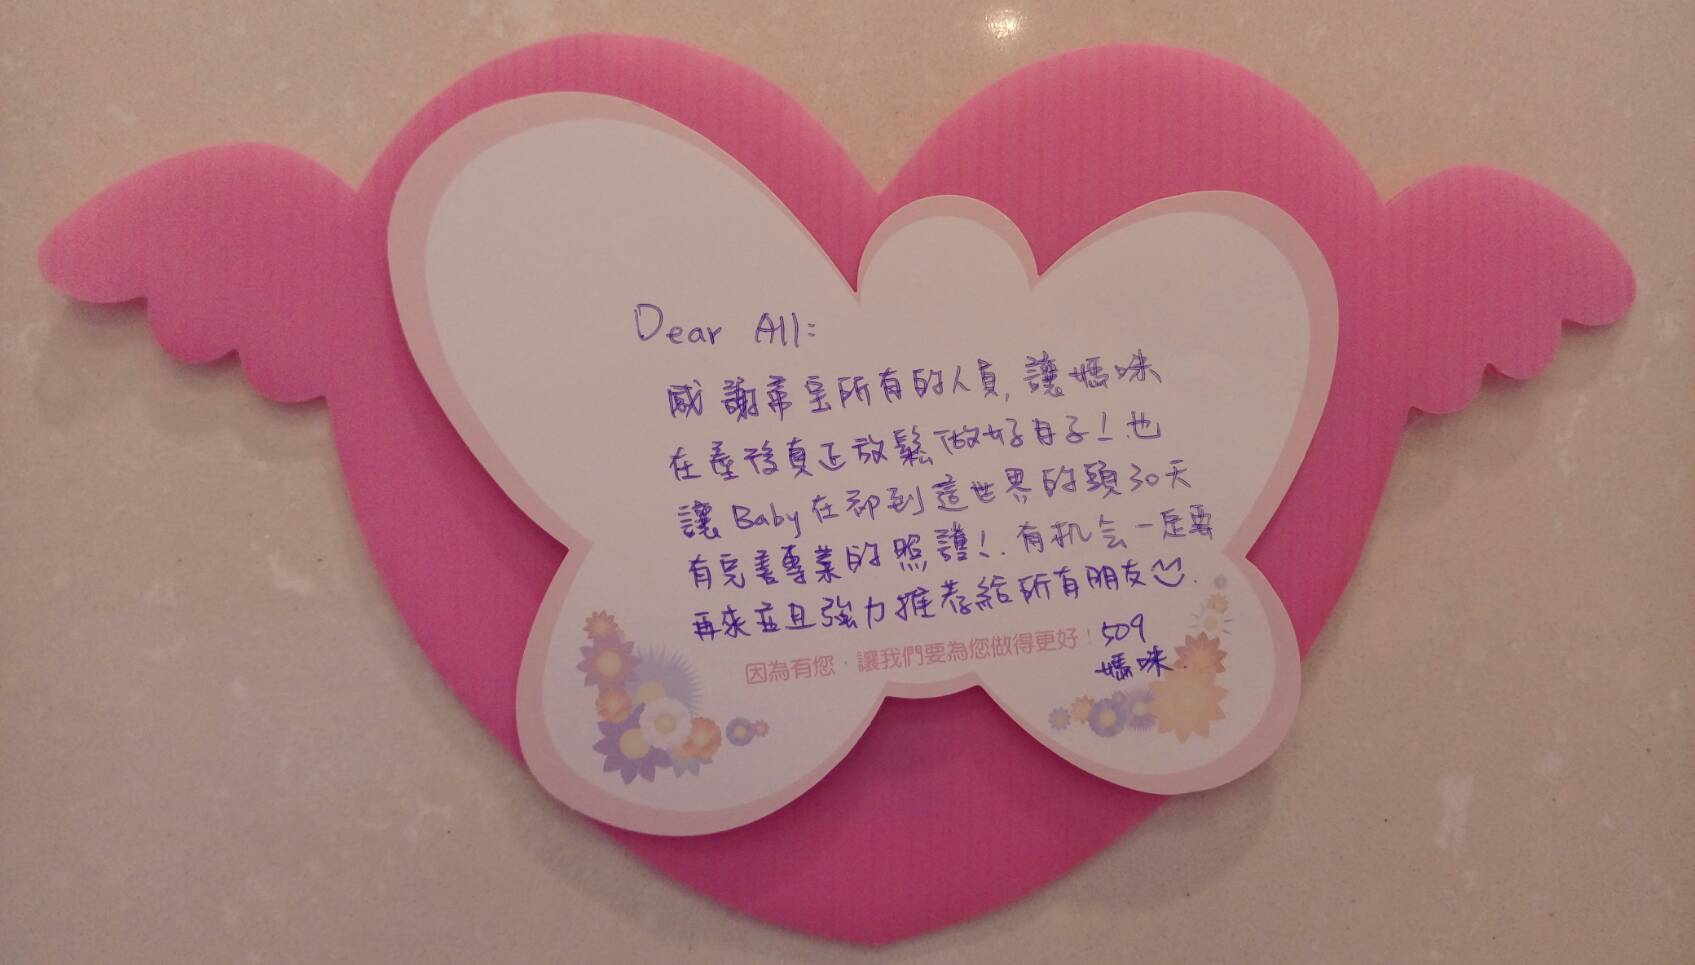 Dear All:
感謝帝宝所有的人員,讓媽咪
在產後真正放鬆做好月子!也
讓Baby在卻到這世界的頭30天
有完善專業的照護!.有机会一定要
再來並且強力推荐給所有朋友.
因為有您,讓我們要為您做得更好!
509
媽咪.